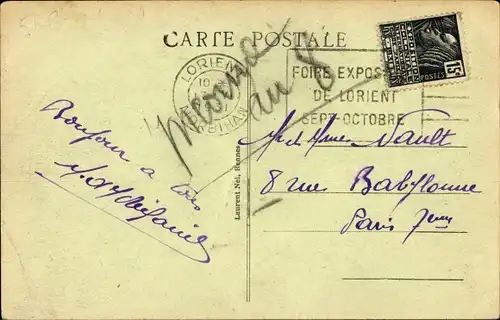 CARTE POSTALE
LORIENT
MORBIHAN
FOIRE EXPOS
DE LORIENT
SEPT-OCTOBRE
EXPOSITION
COLONIALE
POSTES
15c
au 8
Bonjour à tous
Laurent Nel, Rennes
M. et Mme Nault
8 rue Babylonne
Paris 7eme